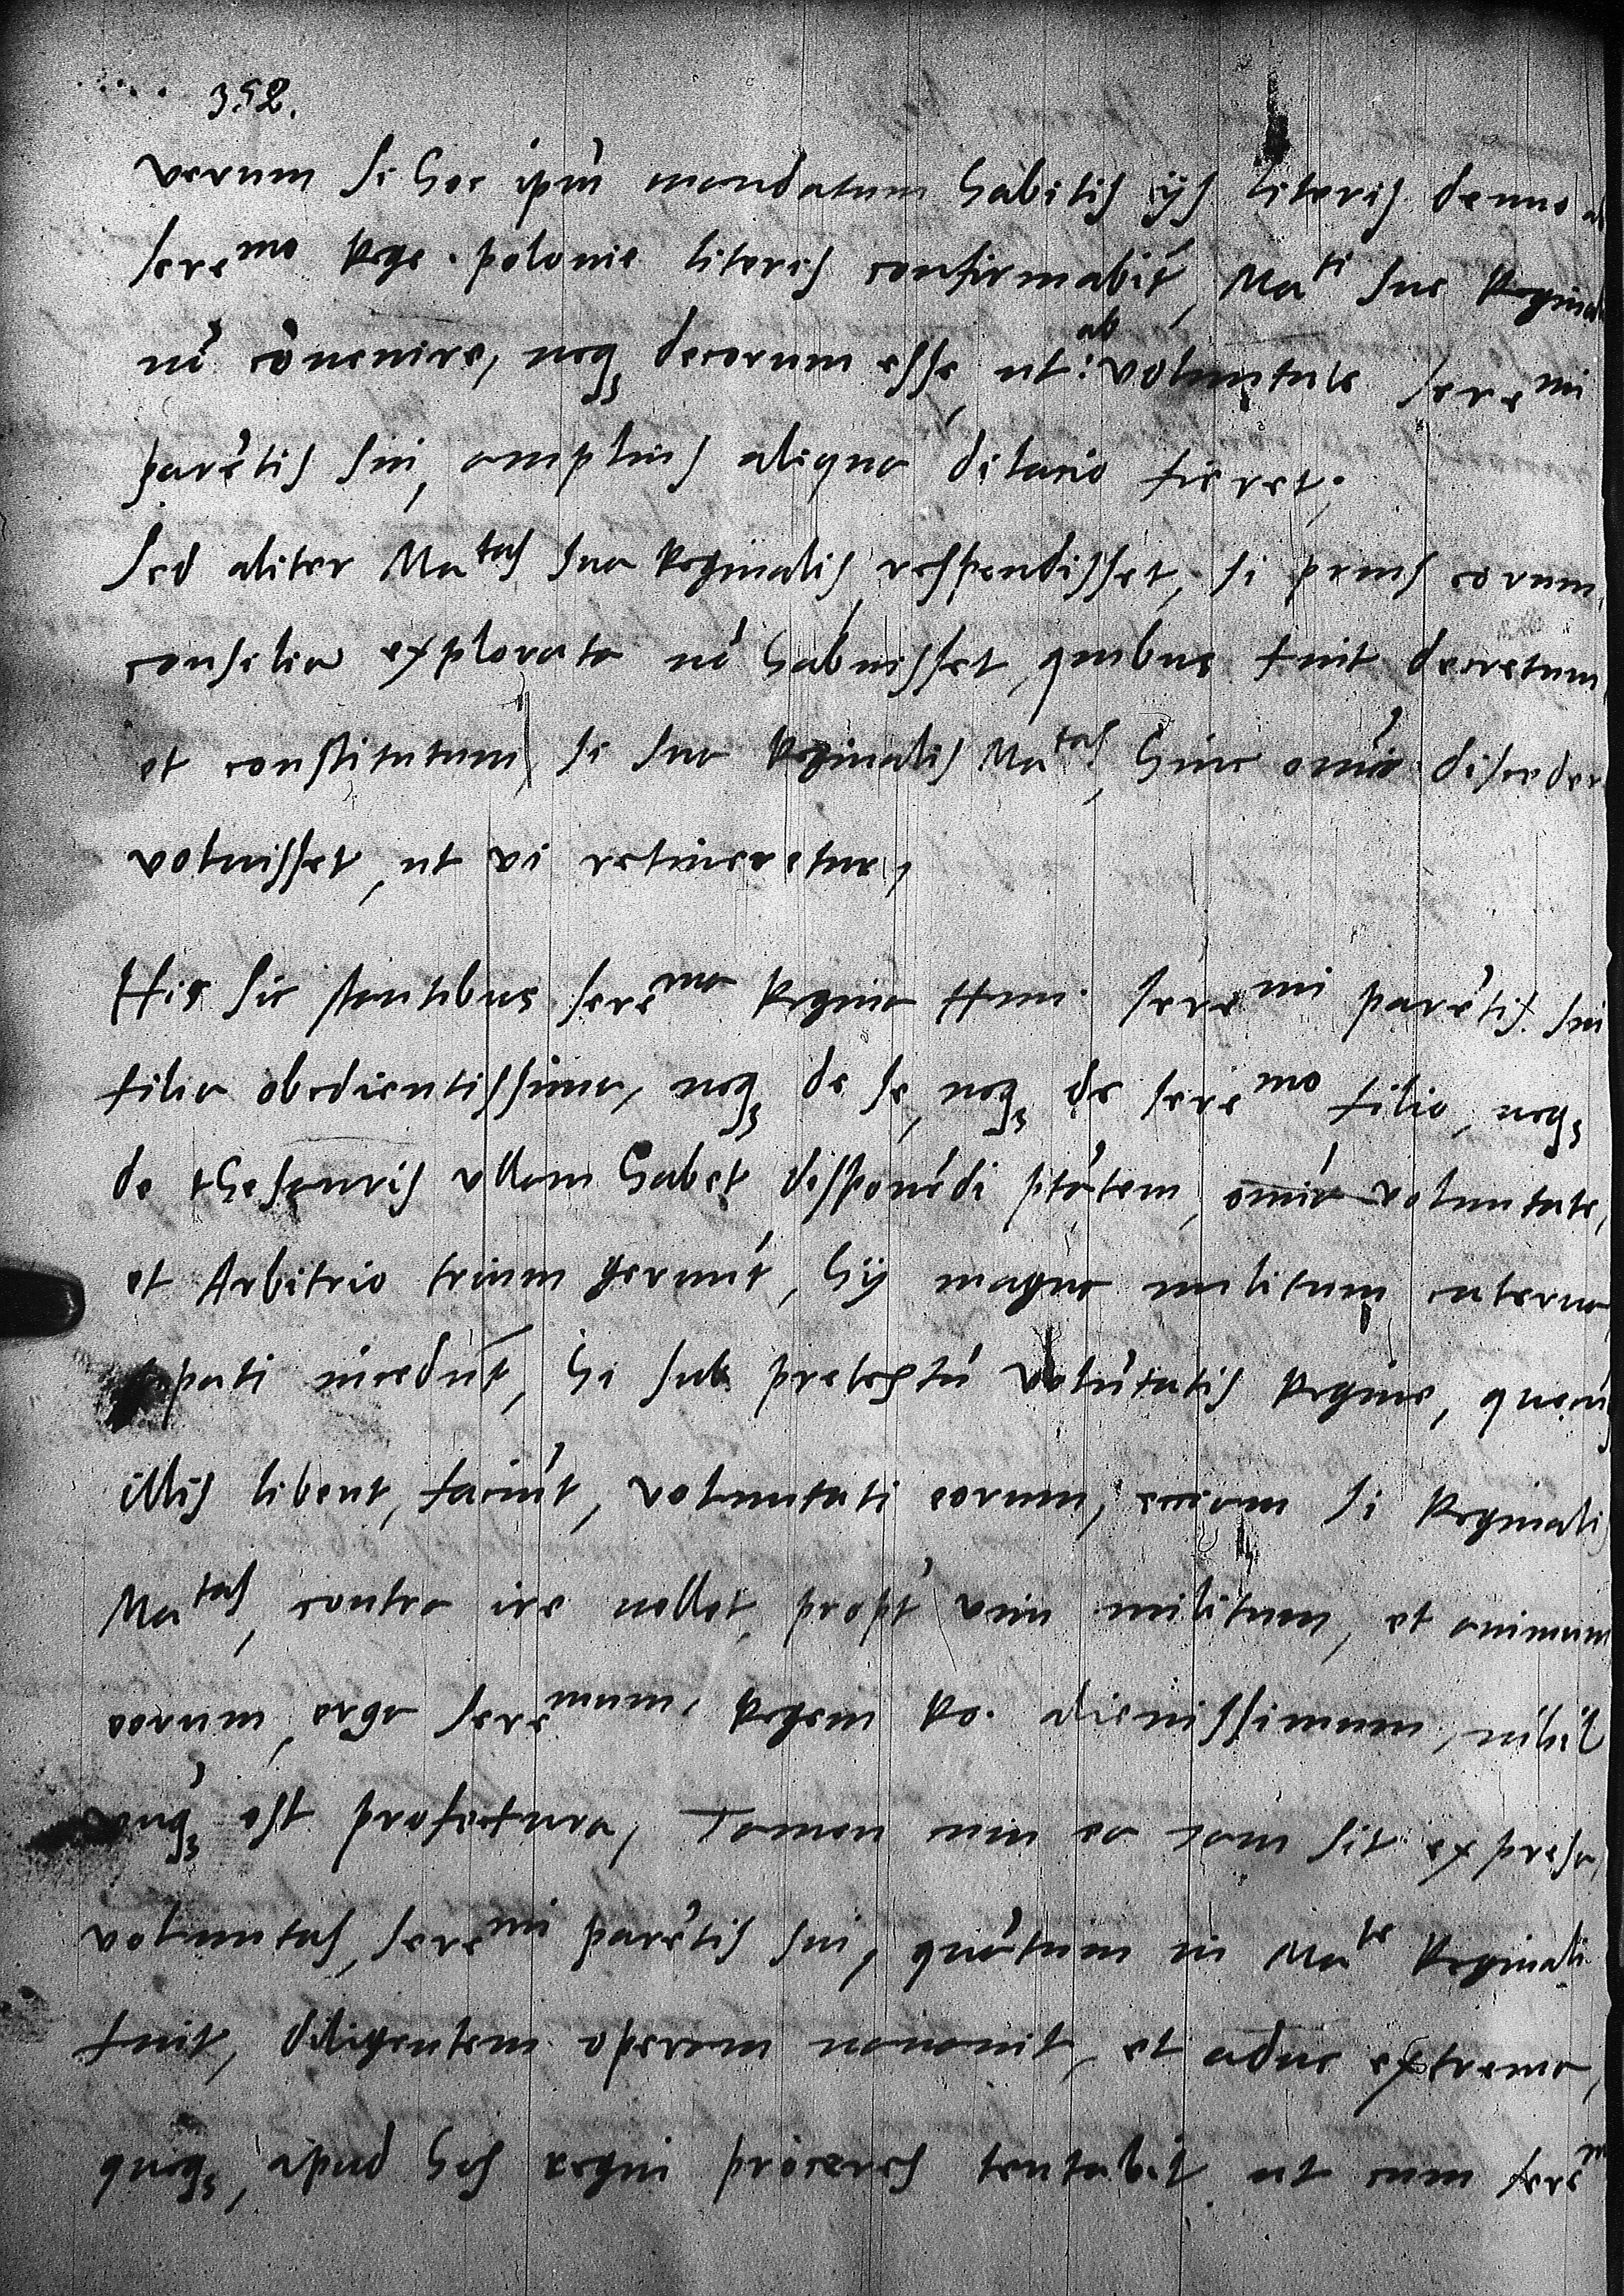 352.
verum si hoc ipm̄ mandatum habitis ijs literis denuo a
sere^mo Rege polonie literis confirmabit, Ma^ti sue Reginali
nō cōuenire, neq; decorum esse, ut ab voluntate sere^mi
parētis sui, amplius aliqua dilacio fieret.
Sed aliter Ma^tas sua Reginalis respondisset, si prius eorum
consilia explorata nō habuisset, quibus fuit decretum
et constitutum, si sua Reginalis Ma^tas, hinc omīo discedere
voluisset, ut vi retineretur,
His sic stantibus sere^ma Regina Hun. sere^mi parētis sui
filia obedientissima, neq; de se, neq; de sere^mo filio, neq;
de thesauris ullam habet disponēdi ptātem, omīa voluntate,
et Arbitrio trium gerunt, hij magna militum caterua
stipati incedūt, hi sub pretextu volūtatis Regine, quecūq;
illis libent, faciūt, voluntati eorum, eciam si Reginalis
Ma^tas, contra ire nollet, propt' vim militum, et animum
eorum, erga sere^mum, Regem Ro. alienissimum, nihil
est profectura, Tamen cum ea iam sit expressa,
voluntas, sere^mi parētis sui, quātum in Ma^te Reginali
fuit, diligentem operam nauauit, et aduc extrema,
queq;, apud hos regni proceres tentabit, ut cum sere^